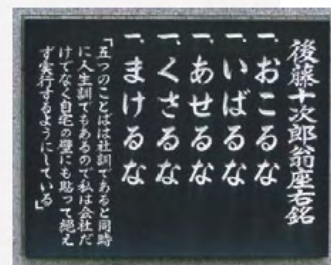 後藤十次郎翁座右銘
一、おこるな
一、いばるな
一、あせるな
一、くさるな
一、まけるな
「五つのことはは社訓であると同時
に人生訓でもあるので私は会社だ
けでなく自宅の壁にも貼って絶え
ず実行するようにしている」